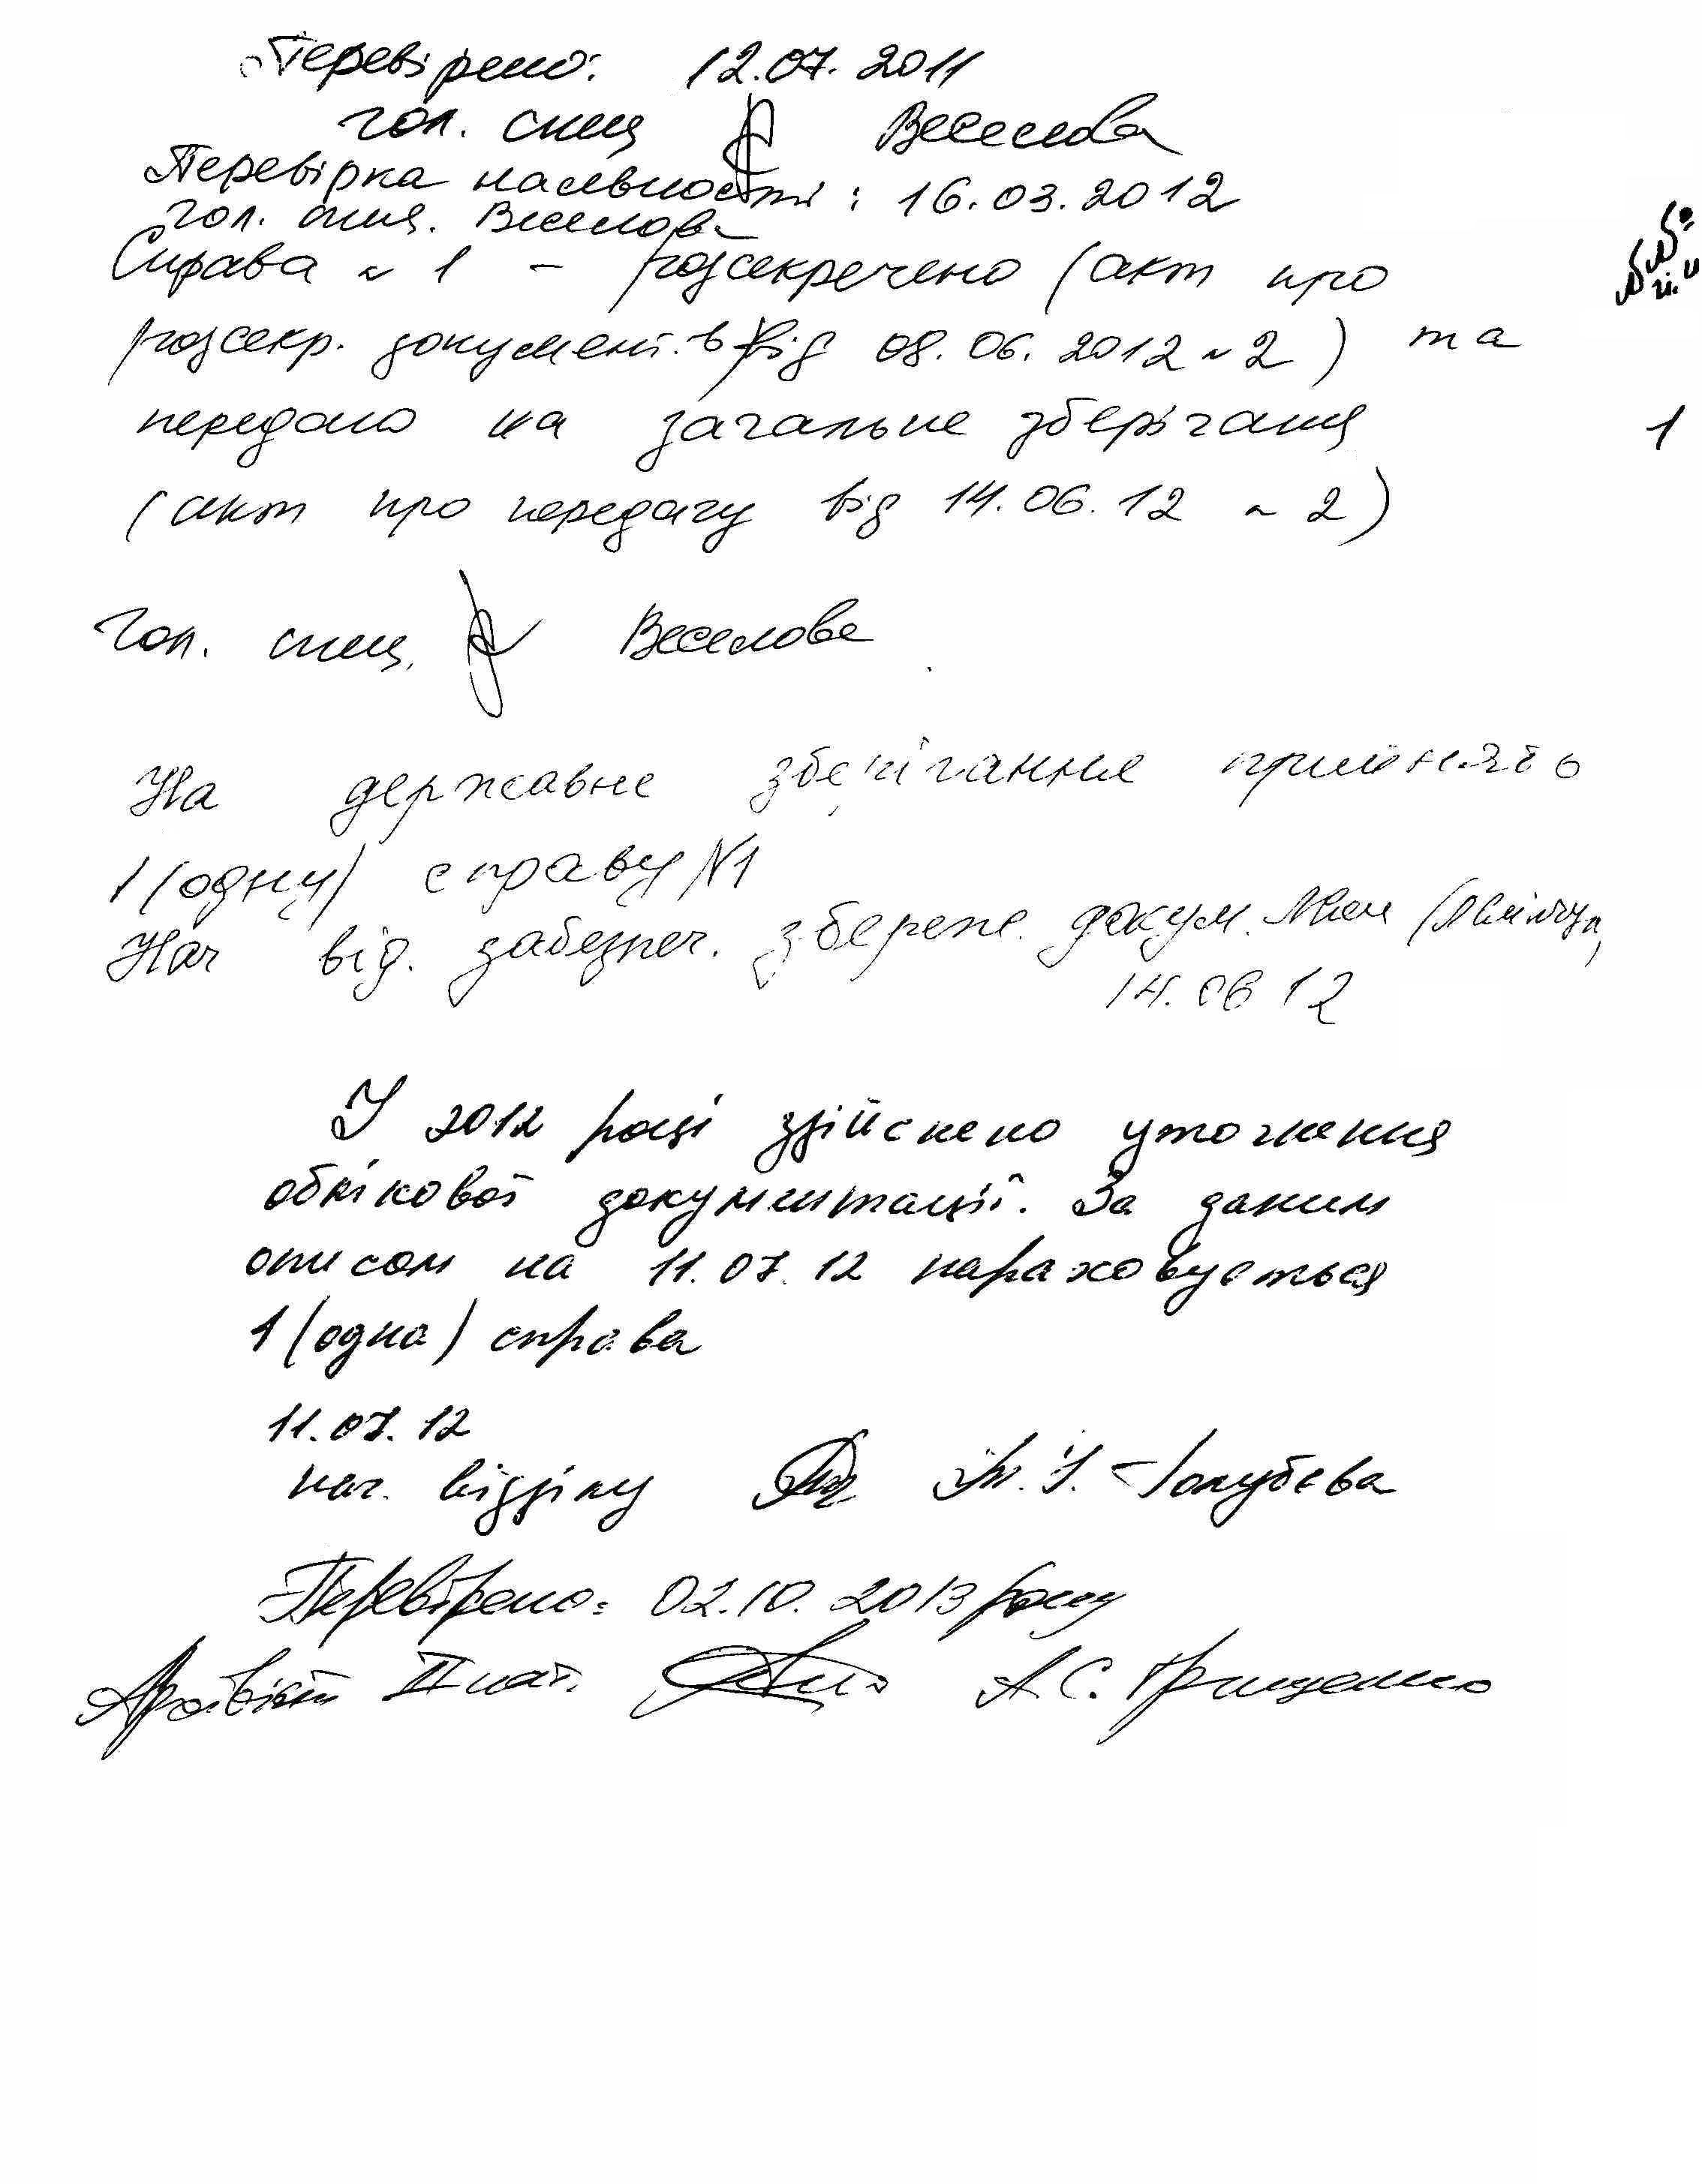 Перевірено: 12.07.2011
гол. спец Веселова
Перевірка наявності: 16.03.2012
гол. спец. Веселова
Справа № 1 – розсекречено (акт про
розсекр. документ.в від 08.06.2012 №2) та
передано на загальне зберігання
1
(акт про передачу від 14.06.12 № 2)
Гол. спец. Веселова
На державне зберігання прийнято
1 (одну) справу №1
Нач від. забезпеч. збереж. докум.
14.06 12
У 2012 році здійснено уточнення
облікової документації. За даним
описом на 11.07.12 нараховується
1 (одна) справа
11.07.12
нач. відділу Голубєва
Перевірено: 02.10.2013 року
Архівіст II кат. А.С. Грищенко